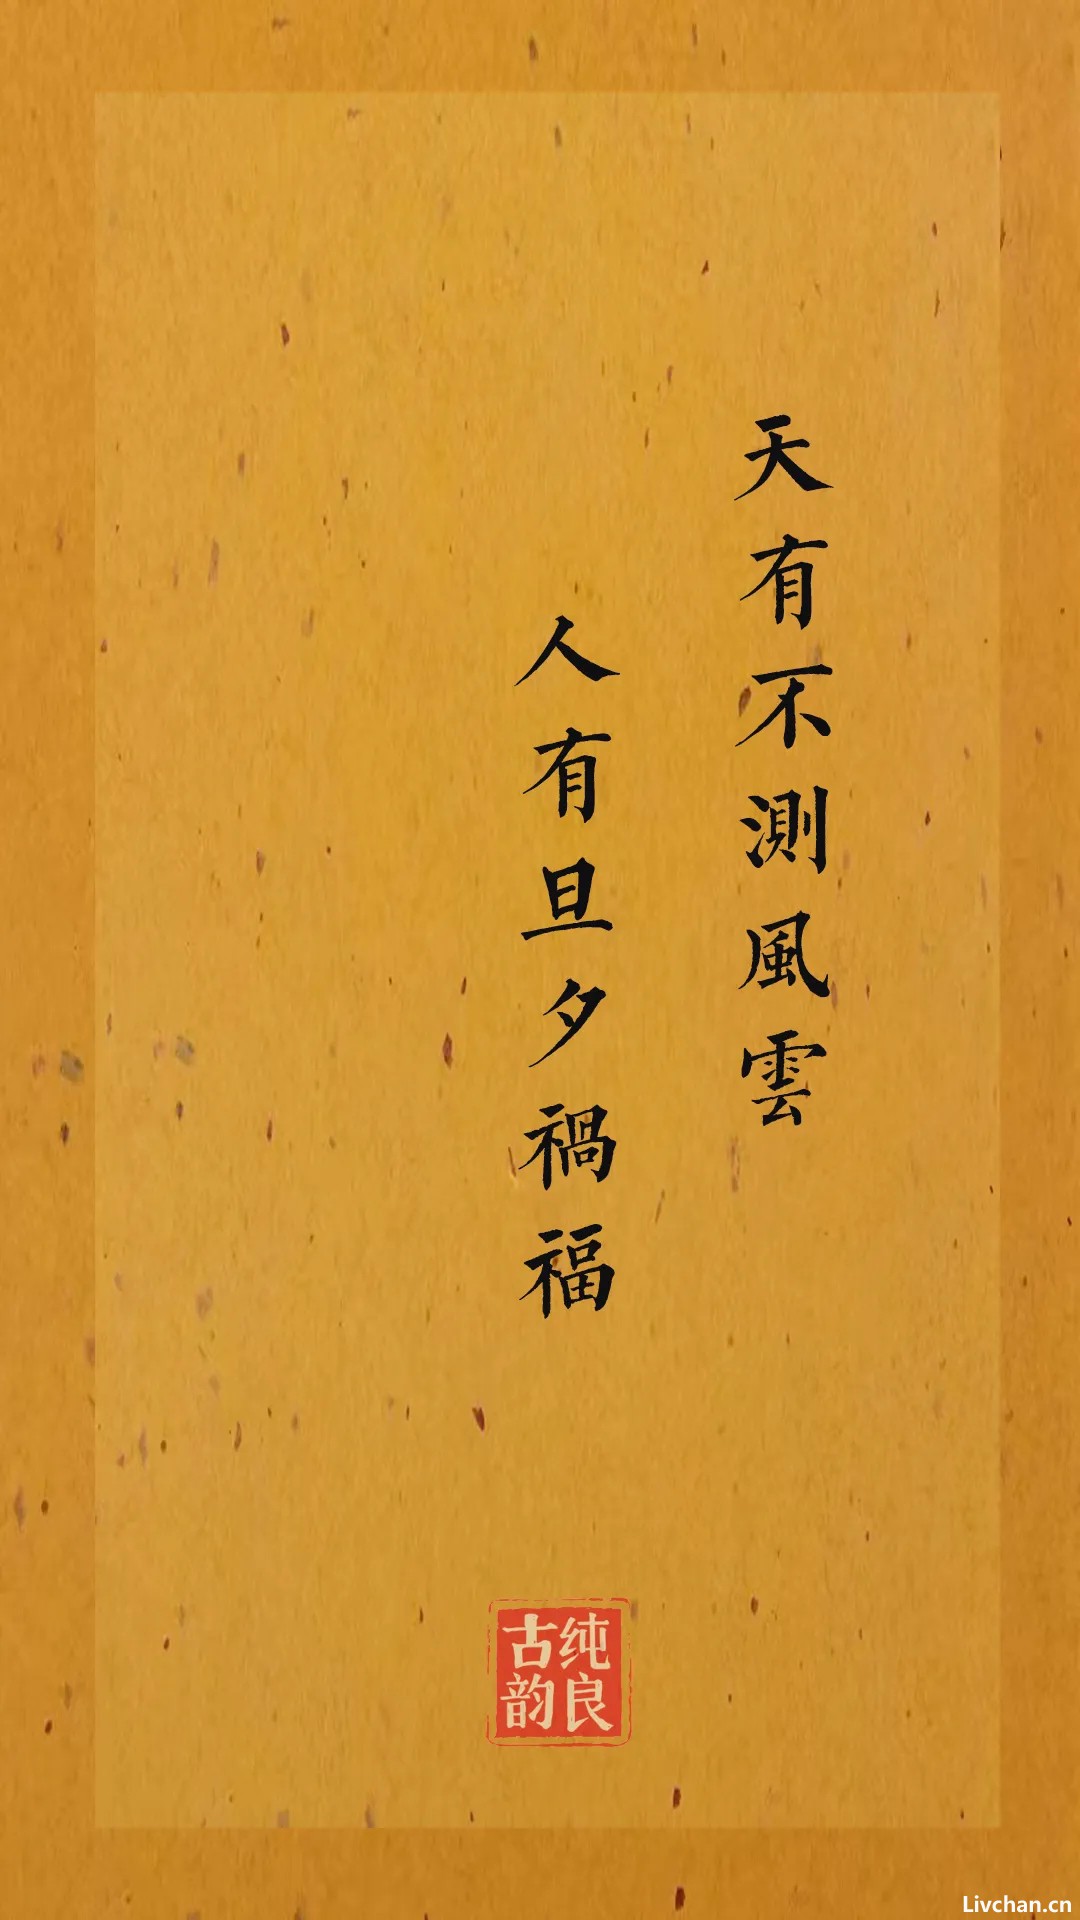 天有不測風雲
人有旦夕禍福
纯良
古韵
Livchan.cn